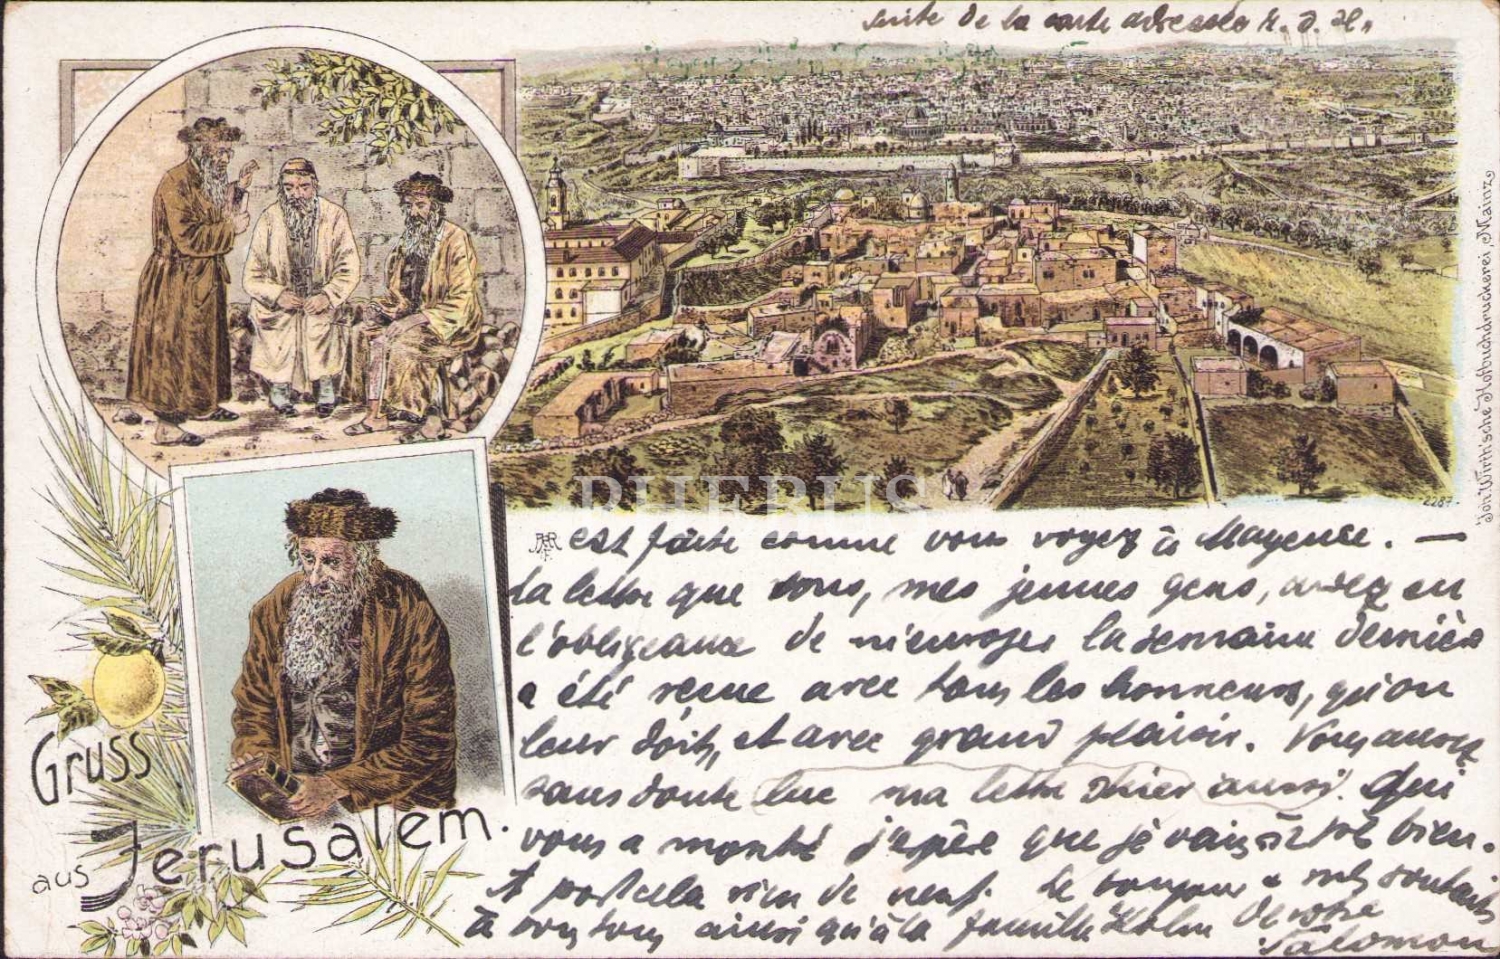 suite de la carte adressée
Gruss
aus Jerusalem.
Joh. Wirth'sche Hofbuchdruckerei, Mainz
2287
PHEBUS
est faite comme vous voyez à Mayence. —
La lettre que vous, mes jeunes gens, avez eu
l'obligeance de m'envoyer la semaine dernière
a été reçue avec tous les honneurs, qu'on
leur doit, et avec grand plaisir. Vous aurez
sans doute lue ma lettre d'hier aussi. Qui
vous a montré j'espère que je vais très bien.
A part cela rien de neuf. Le bonjour & mes souhaits
à vous tous ainsi qu'à la famille de votre
Salomon